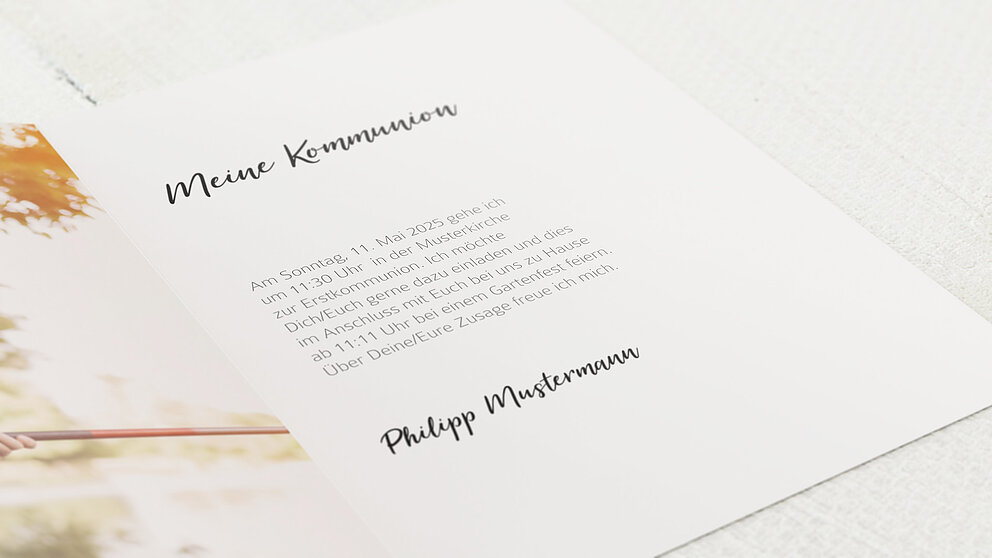 Meine Kommunion
Am Sonntag, 11. Mai 2025 gehe ich
um 11:30 Uhr in der Musterkirche
zur Erstkommunion. Ich möchte
Dich/Euch gerne dazu einladen und dies
im Anschluss mit Euch bei uns zu Hause
ab 11:11 Uhr bei einem Gartenfest feiern.
Über Deine/Eure Zusage freue ich mich.
Philipp Mustermann